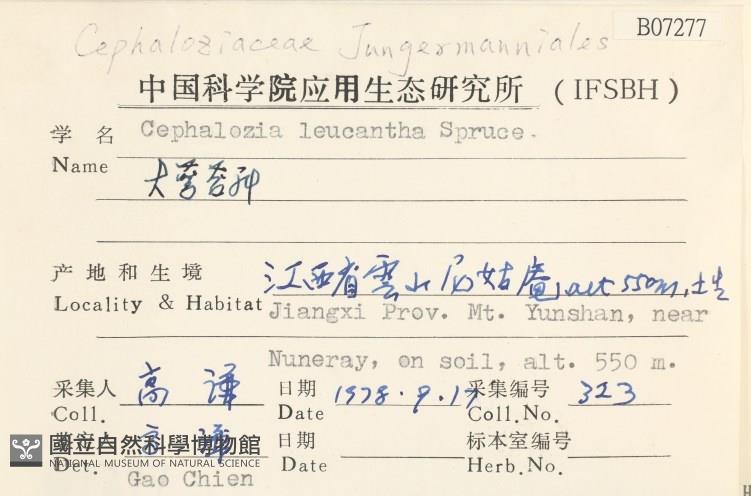 B07277
Cephaloziaceae Jungermanniales
中国科学院应用生态研究所 (IFSBH)
学名 Cephalozia leucantha Spruce.
Name 大萼苔科
产地和生境 江西省雲山尼姑庵, alt 550m, 土生
Locality & Habitat Jiangxi Prov. Mt. Yunshan, near
Nuneray, on soil, alt. 550 m.
采集人 高谦 日期 1978.9.17 采集编号 323
Coll. Date Coll.No.
日期 标本室编号
國立自然科學博物館
NATIONAL MUSEUM OF NATURAL SCIENCE
Det. Gao Chien Date Herb.No.